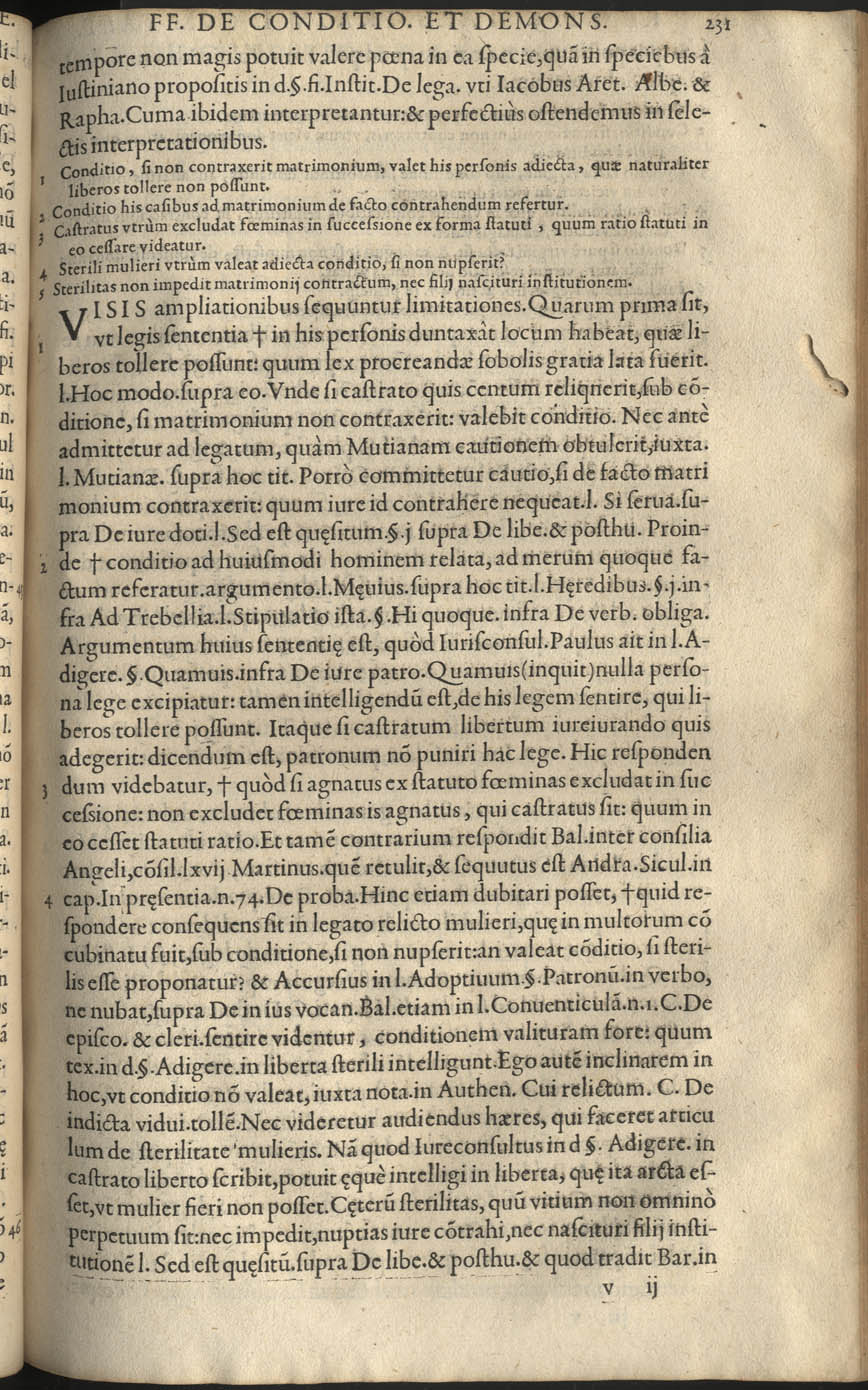 FF. DE CONDITIO. ET DEMONS. 231
tempore non magis potuit valere pœna in ea ſpecie,quã in ſpeciebus à
Iuſtiniano propoſitis in d.§.fi.Inſtit.De lega. vti Iacobus Aret. Albe. &
Rapha.Cuma ibidem interpretantur:& perfectiùs oſtendemus in ſele-
ctis interpretationibus.
1 Conditio, ſi non contraxerit matrimonium, valet his perſonis adiecta, quæ naturaliter
liberos tollere non poſſunt.
2 Conditio his caſibus ad matrimonium de facto contrahendum refertur.
3 Caſtratus vtrùm excludat fœminas in ſucceſsione ex forma ſtatuti, quum ratio ſtatuti in
eo ceſſare videatur.
4 Sterili mulieri vtrùm valeat adiecta conditio, ſi non nupſerit?
5 Sterilitas non impedit matrimonij contractum, nec filij naſcituri inſtitutionem.
VISIS ampliationibus ſequuntur limitationes.Quarum prima ſit,
1 vt legis ſententia † in his perſonis duntaxàt locum habeat, quæ li-
beros tollere poſſunt: quum lex procreandæ ſobolis gratia lata fuerit.
l.Hoc modo.ſupra eo.Vnde ſi caſtrato quis centum reliquerit,ſub cō-
ditione, ſi matrimonium non contraxerit: valebit conditio. Nec antè
admittetur ad legatum, quàm Mutianam cautionem obtulerit,iuxta.
l. Mutianæ. ſupra hoc tit. Porrò committetur cautio,ſi de facto matri
monium contraxerit: quum iure id contrahere nequeat.l. Si ſerua.ſu-
pra De iure doti.l.Sed eſt quęſitum.§.j ſupra De libe.& poſthu. Proin-
2 de † conditio ad huiuſmodi hominem relata, ad merum quoque fa-
ctum referatur.argumento.l.Męuius.ſupra hoc tit.l.Hęredibus.§.j.in-
fra Ad Trebellia.l.Stipulatio iſta.§.Hi quoque. infra De verb. obliga.
Argumentum huius ſententię eſt, quòd Iuriſconſul.Paulus ait in l.A-
digere.§.Quamuis.infra De iure patro.Quamuis(inquit)nulla perſo-
na lege excipiatur: tamen intelligendū eſt,de his legem ſentire, qui li-
beros tollere poſſunt. Itaque ſi caſtratum libertum iureiurando quis
adegerit: dicendum eſt, patronum nō puniri hac lege. Hic reſponden
3 dum videbatur, † quòd ſi agnatus ex ſtatuto fœminas excludat in ſuc
ceſsione: non excludet fœminas is agnatus, qui caſtratus ſit: quum in
eo ceſſet ſtatuti ratio.Et tamē contrarium reſpondit Bal.inter conſilia
Angeli,cōſil.lxvij Martinus.quē retulit,& ſequutus eſt Andra.Sicul.in
4 cap.In pręſentia.n.74.De proba.Hinc etiam dubitari poſſet, †quid re-
ſpondere conſequens ſit in legato relicto mulieri,quę in multorum cō
cubinatu fuit,ſub conditione,ſi non nupſerit:an valeat cōditio, ſi ſteri-
lis eſſe proponatur? & Accurſius in l.Adoptiuum.§.Patronū.in verbo,
ne nubat,ſupra De in ius vocan.Bal.etiam in l.Conuenticulã.n.1.C.De
epiſco. & cleri.ſentire videntur, conditionem valituram fore: quum
tex.in d.§.Adigere.in liberta ſterili intelligunt.Ego autē inclinarem in
hoc,vt conditio nō valeat, iuxta nota.in Authen. Cui relictum. C. De
indicta vidui.tollē.Nec videretur audiendus hæres, qui faceret articu
lum de ſterilitate mulieris. Nã quod Iureconſultus in d §. Adigere. in
caſtrato liberto ſcribit,potuit ęquè intelligi in liberta, quę ita arcta eſ-
ſet,vt mulier fieri non poſſet.Cęterū ſterilitas, quū vitium non omninò
perpetuum ſit:nec impedit,nuptias iure cōtrahi,nec naſcituri filij inſti-
tutionē l. Sed eſt quęſitū.ſupra De libe.& poſthu.& quod tradit Bar.in
v ij